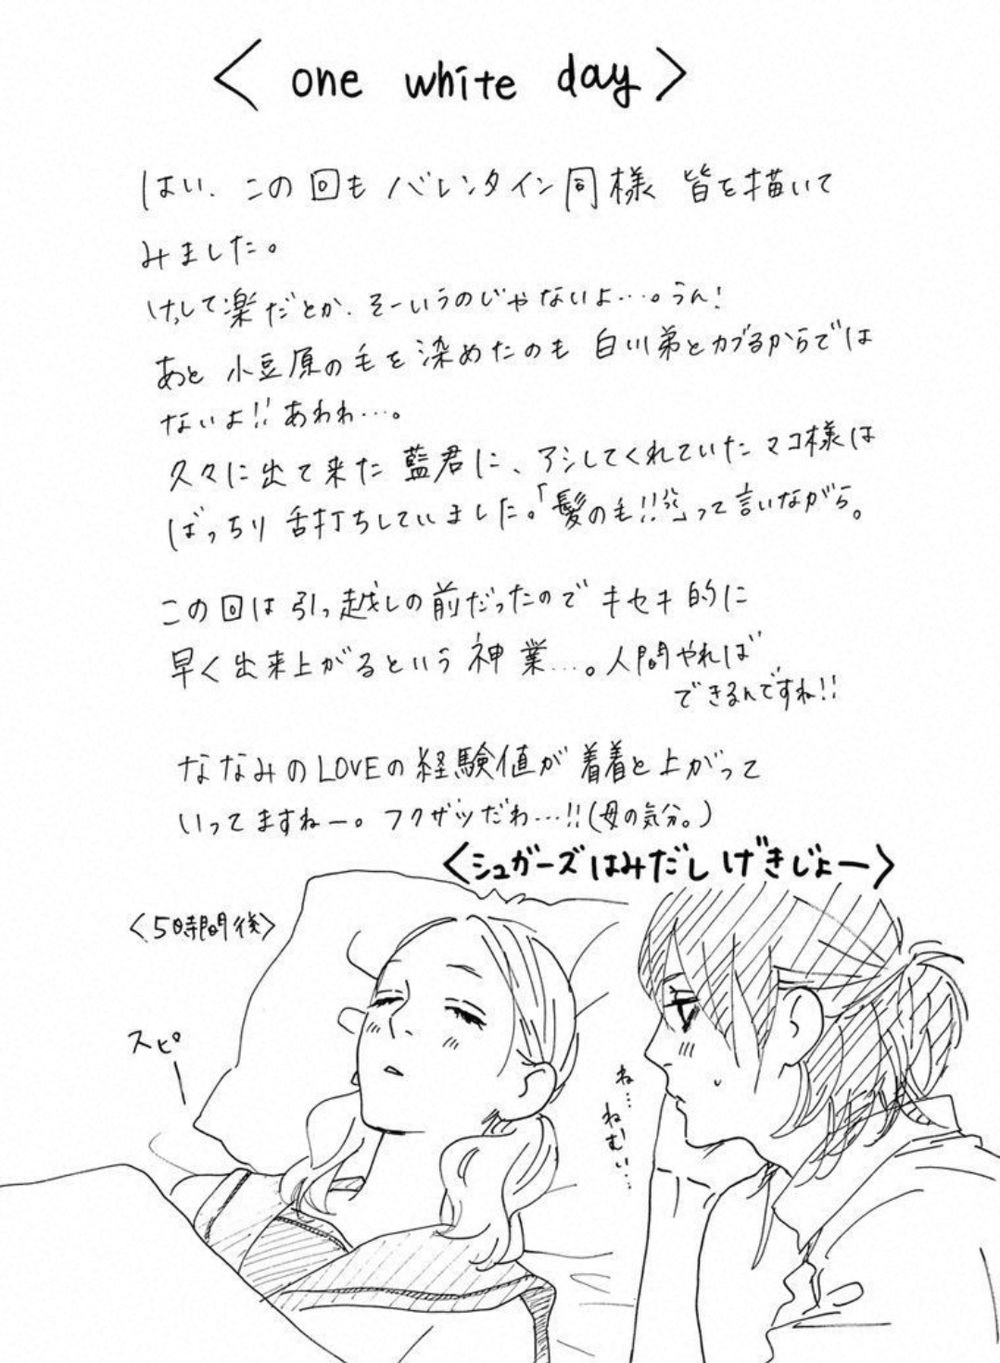 < one white day >
はい、この回も バレンタイン同様 皆を描いて
みました。
けして楽だとか、そーいうのじゃないよ…。うん!
あと 小豆原の毛を染めたのも 白川弟とカブるからでは
ないよ!! あわわ…。
久々に出て来た 藍君に、アシしてくれていた マコ様は
ばっちり 舌打ちしていました。「髪の毛!!」って言いながら。
この回は 引っ越しの前だったので キセキ的に
早く出来上がるという 神業…。人間やれば
できるんですね!!
ななみのLOVEの経験値が 着着と上がって
いってますねー。フクザツだわ…!! (母の気分。)
<シュガーズはみだし げきじょー>
<5時間後>
スピ
ね…
ねむい…